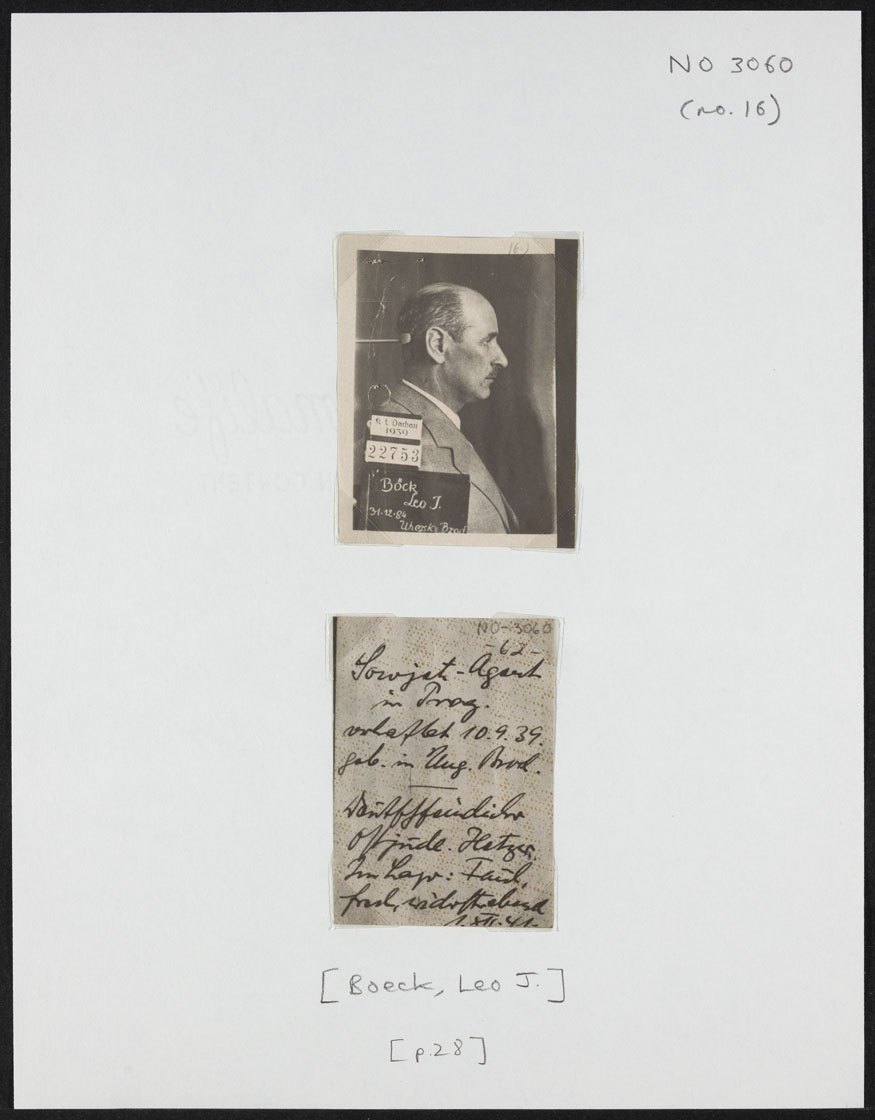 NO 3060
(no. 16)
16.)
K. L. Dachau
1939
22753
Böck
Leo J.
31.12.84
Uhersky Brod
NO-3060
-62-
Sowjet-Agent
in Prag.
verhaftet 10.9.39.
geb. in Ung. Brod.
Deutschfeindlicher
Ostjüd. Hetzer.
Im Lager: Faul,
frech, widerstrebend
1.XII.41.
[Boeck, Leo J.]
[p.28]